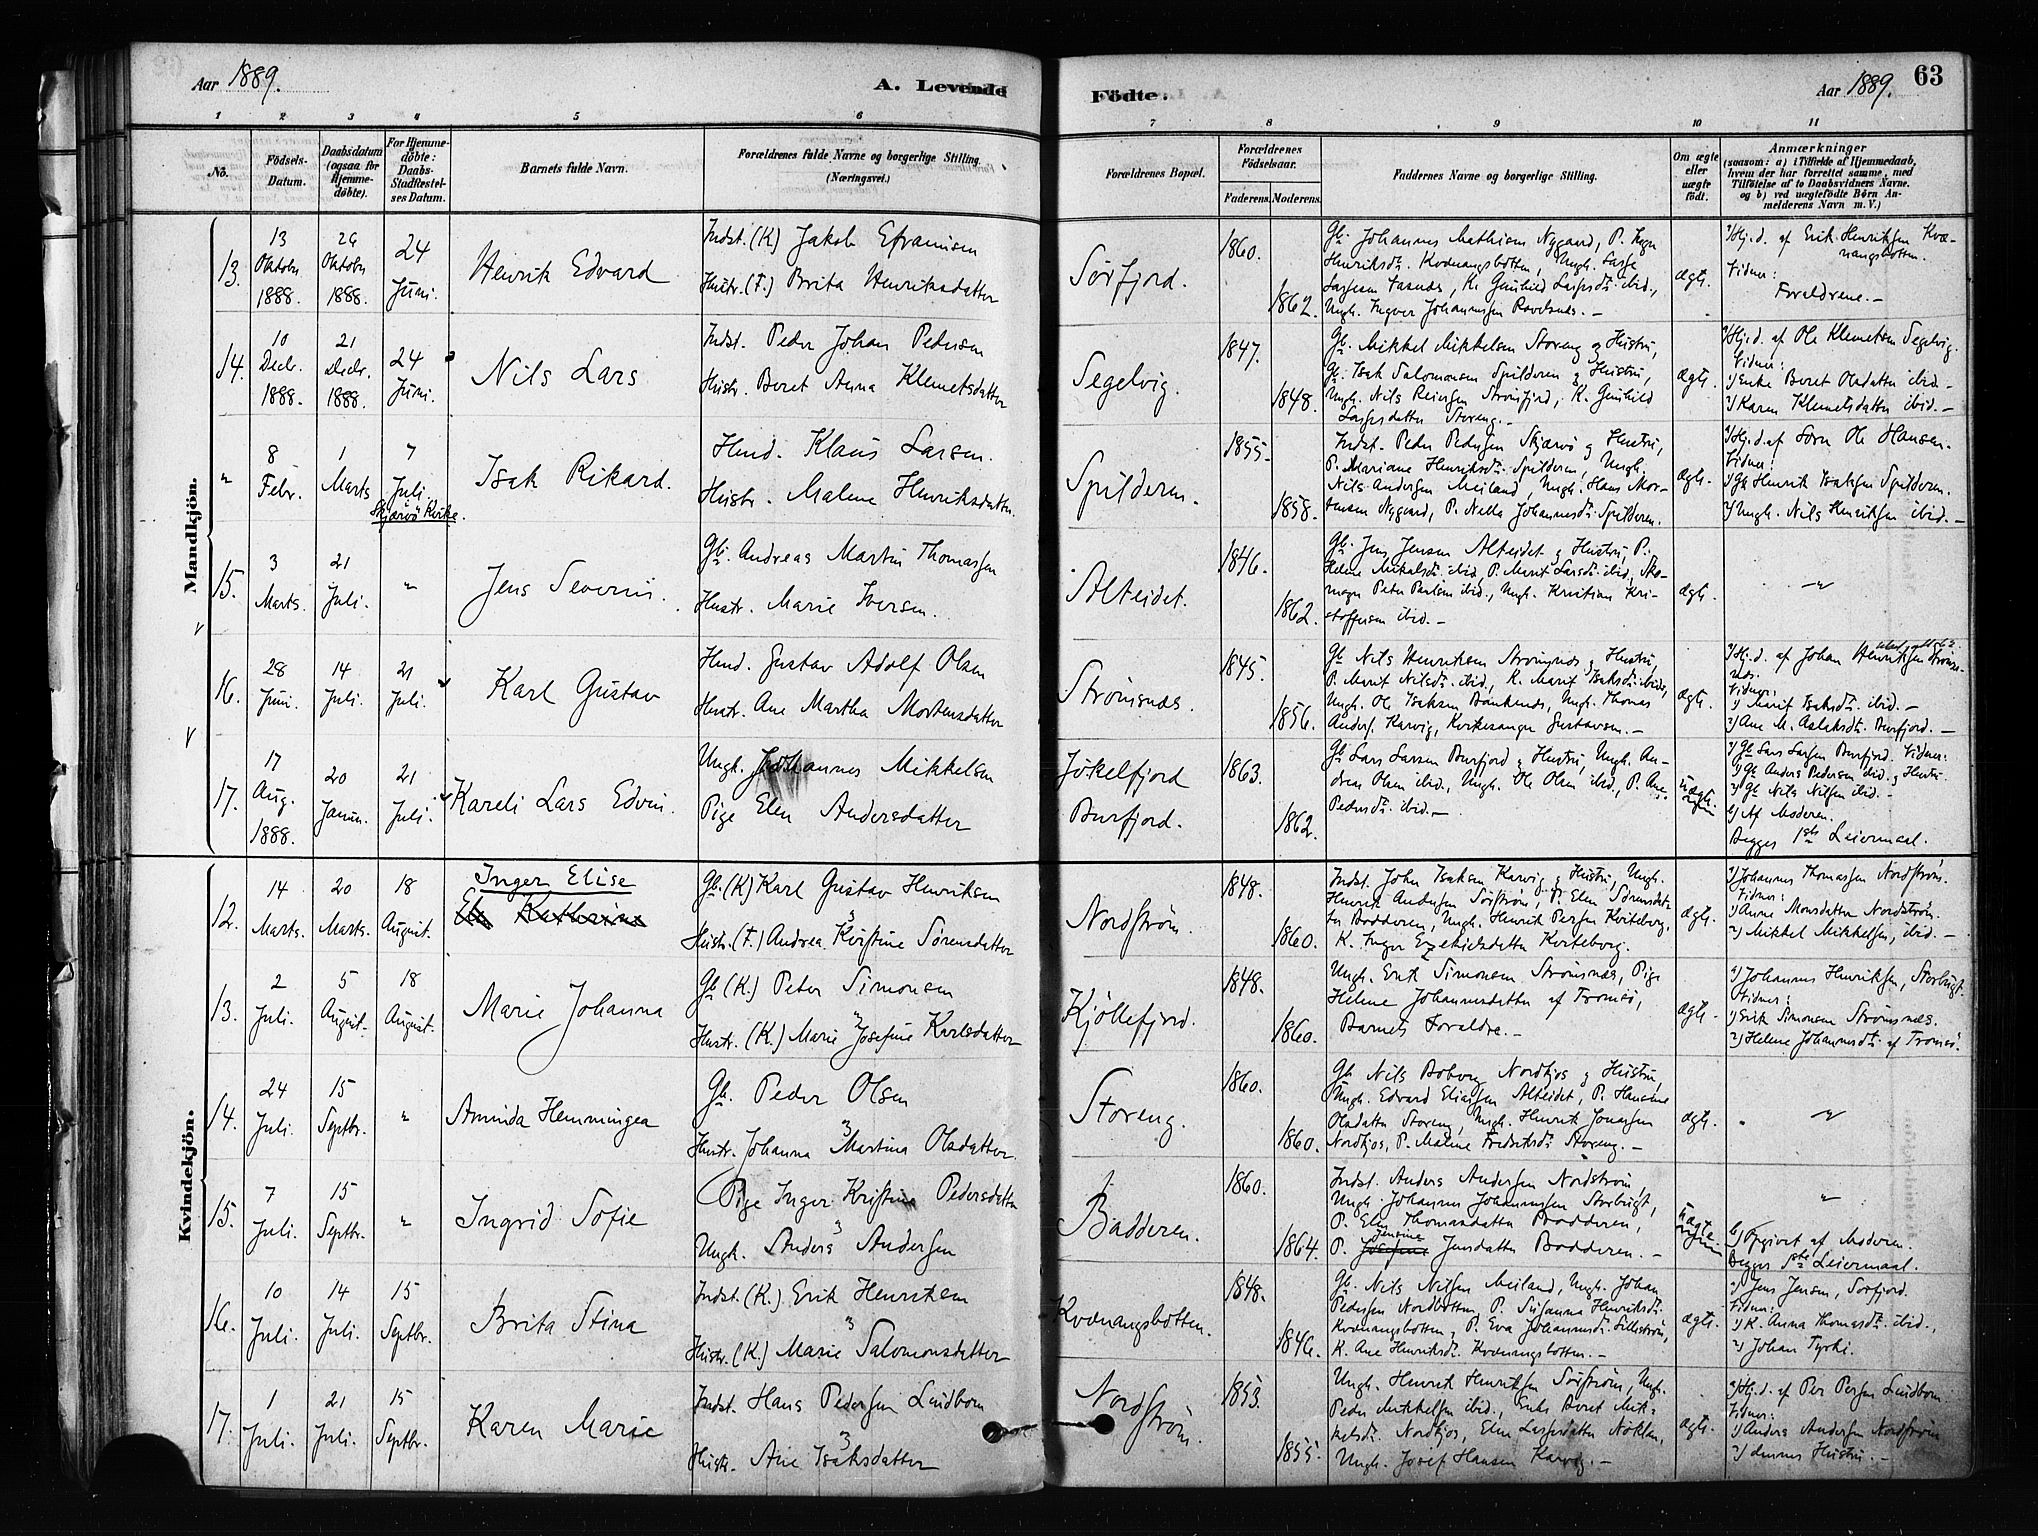 Aar 1889.
A. Levende
Födte.
Aar 1889.
63
1 2 3 4 5 6 7 8 9 10 11
No.
Födsels-Datum.
Daabsdatum (ogsaa for Hjemmedöbte).
For Hjemmedöbte: Daabs-Stadfæstelses Datum.
Barnets fulde Navn.
Forældrenes fulde Navne og borgerlige Stilling. (Næringsvei.)
Forældrenes Bopæl.
Forældrenes Födselsaar.
Faderens. Moderens.
Faddernes Navne og borgerlige Stilling.
Om ægte eller uægte födt.
Anmærkninger
(saasom: a) i Tilfælde af Hjemmedaab, hvem der har forrettet samme, med Tilföielse af to Daabsvidners Navne. og b) ved uægtefödte Börn Anmelderens Navn m. V.)
Mandkjön.
13.
13 Oktobr 1888.
26 Oktobr 1888.
24 Juni.
Henrik Edvard
Indst. (K) Jakob Efraimsen
Hustr. (F.) Brita Henriksdatter
Sørfjord.
1860.
1862.
Gb. Johannes Mathisen Nygaard, P. Inger
Henriksdt. Kvænangsbotten, Ungk. Lasse
Ungk. Ingvor Johannesen Ravelsnæs. —
ægte.
a/ Hj.d. af Erik Henriksen Kvænangsbotten.
Vidner:
Forældrene. —
14.
10 Decbr. 1888.
21 Decbr. 1888.
24 Juni.
Nils Lars
Indst. Peder Johan Pedersen
Hustr. Beret Anna Klemetsdatter
Segelvig.
1847.
1848.
Gb. Mikkel Mikkelsen Storeng og Hustru,
Gb. Isak Salomonsen Spilderen og Hustru,
Ungk. Nils Reiersen Strømfjord, K. Gunhild
Lassesdatter Storeng. —
ægte.
a/ Hj.d. af Ole Klemetsen Segelvig.
Vidner:
1/ Enke Beret Olsdatter ibid. —
2/ Karen Klemetsdatter ibid. —
"
8 Febr.
1 Marts
7 Juli.
Skjærvø Kirke.
Isak Rikard.
Hmd. Klaus Larsen.
Hustr. Malene Henriksdatter.
Spilderen.
1855.
1858.
Indst. Peder Pedersen Skjærvø og Hustru,
P. Mariane Henriksdt. Spilderen, Ungk.
Nils Andersen Meiland, Ungk. Hans Mortensen Nygaard, P. Nella Johannesdt. Spilderen.
ægte.
a/ Hj.d. af Sørn Ole Hansen.
Vidner:
1/ Gb. Henrik Isaksen Spilderen.
2/ Ungk. Nils Henriksen ibid. —
15.
3 Marts.
21 Juli.
"
Jens Severin.
Gb. Andreas Martin Thomassen
Hustr. Marie Iversen.
Alteidet.
1846.
1862.
Gb. Jens Jensen Alteidet og Hustru, P.
Helene Mikalsdt. ibid., P. Marit Larsdt. ibid., Skomager Peter Paulsen ibid., Ungk. Kristian Kristoffersen ibid. —
ægte.
— " —
16.
28 Juni.
14 Juli.
21 Juli.
Karl Gustav
Hmd. Gustav Adolf Olsen
Hustr. Ane Martha Mortensdatter
Strømsnæs.
1845.
1856.
Gb. Nils Henriksen Strømsnæs og Hustru,
P. Marit Nilsdt. ibid., K. Marit Isaksdt. ibid.,
Ungk. Ole Isaksen Bankenæs, Ungk. Thomas
Anders. Karvig, Kirkesanger Gustavsen. —
ægte.
a/ Hj.d. af Johan Henriksen Strømsnæs.
Vidner:
1/ Marit Isaksdt. ibid. —
2/ Ane M. Aslaksdt. Burfjord. —
17.
17 Aug. 1888.
20 Januar.
21 Juli.
Kareli Lars Edvin.
Ungk. Johannes Mikkelsen
Pige Elen Andersdatter
Jøkelfjord
Burfjord.
1863.
1862.
Gb. Lars Larsen Burfjord og Hustru, Ungk. Andreas Olsen ibid., Ungk. Ole Olsen ibid., P. Ane
Pedersdt. ibid. —
uægte.
a/ Gb. Lars Larsen Burfjord. Vidner:
1/ Gb. Anders Pedersen ibid. og Hustru.
2/ Gb. Nils Nilsen ibid. —
b/ Af Moderen.
Begges 1ste Leiermaal.
Kvindekjön.
12.
14 Marts.
20 Marts.
18 August.
Inger Elise
Gb. (K) Karl Gustav Henriksen
Hustr. (F.) Andrea Kristine Sørensdatter
Nordstrøm.
1848.
1860.
Indst. John Isaksen Karvig og Hustru, Ungk.
Henrik Andersen Sørstrøm, P. Elen Sørensdatter Badderen, Ungk. Henrik Persen Kviteberg,
K. Inger Ezekielsdatter Kviteberg.
ægte.
a/ Johannes Thomassen Nordstrøm.
Vidner:
1/ Anne Monsdatter Nordstrøm.
2/ Mikkel Mikkelsen, ibid. —
13.
2 Juli.
5 August.
18 August.
Marie Johanna
Gb. (K.) Peter Simonsen
Hustr. (K.) Marie Josefine Karlsdatter
Kjøllefjord.
1848.
1860.
Ungk. Erik Simonsen Strømsnæs, Pige
Helene Johannesdatter af Tromsø,
Barnets Forældre. —
ægte.
a/ Johannes Henriksen, Storbugt.
Vidner:
1/ Erik Simonsen Strømsnæs.
2/ Helene Johannesdt. af Tromsø.
14.
24 Juli.
15 Septbr.
"
Aminda Hemmingea
Gb. Peder Olsen
Hustr. Johanna Martina Olsdatter.
Storeng.
1860.
1860.
Gb. Nils Boberg Nordkjos og Hustru,
Ungk. Edvard Eliassen Alteidet, P. Hansine
Olsdatter Storeng, Ungk. Henrik Jonassen
Nordkjos, P. Maline Fredriksdt. Storeng. —
ægte.
"
15.
7 Juli.
15 Septbr.
"
Ingrid Sofie
Pige Inger Kristine Pedersdatter
Ungk. Anders Andersen
Badderen.
1860.
1864.
Indst. Anders Andersen Nordstrøm,
Ungk. Johannes Johannesen Storbugt,
P. Elen Thomasdatter Badderen,
P. Jensine Jensdatter Badderen. —
uægte.
"
b/ Opgivet af Moderen.
Begges 1ste Leiermaal.
16.
10 Juli.
14 Juli.
15 Septbr.
Brita Stina
Indst. (K.) Erik Henriksen
Hustr. (K.) Marie Salomonsdatter
Kvænangsbotten.
1848.
1846.
Gb. Nils Nilsen Meiland, Ungk. Johan
Pedersen Nordbotten, P. Susanna Henriksdt.
Kvænangsbotten, P. Eva Johannesdt. Sillestrøm,
K. Ane Henriksdt. Kvænangsbotten. —
ægte.
a/ Jens Jensen, Sørfjord.
Vidner:
1/ K. Anna Thomasdt. ibid.,
2/ Johan Tyrki.
17.
1 Juli.
21 Juli.
15 Septbr.
Karen Marie
Indst. Hans Pedersen Lindbom
Hustr. Ane Isaksdatter
Nordstrøm.
1853.
1855.
Ungk. Henrik Henriksen Sørstrøm, Ungk.
Peder Mikkelsen ibid., Enke Beret Mikkelsdt. Nordkjos, Elen Lassesdatter Nöklan,
Ungk. Josef Hansen Karvig. —
ægte.
a/ Hj.d. af Per Persen Lindbom
Vidner:
1/ Anders Andersen Nordstrøm
2/ dennes Hustru. —